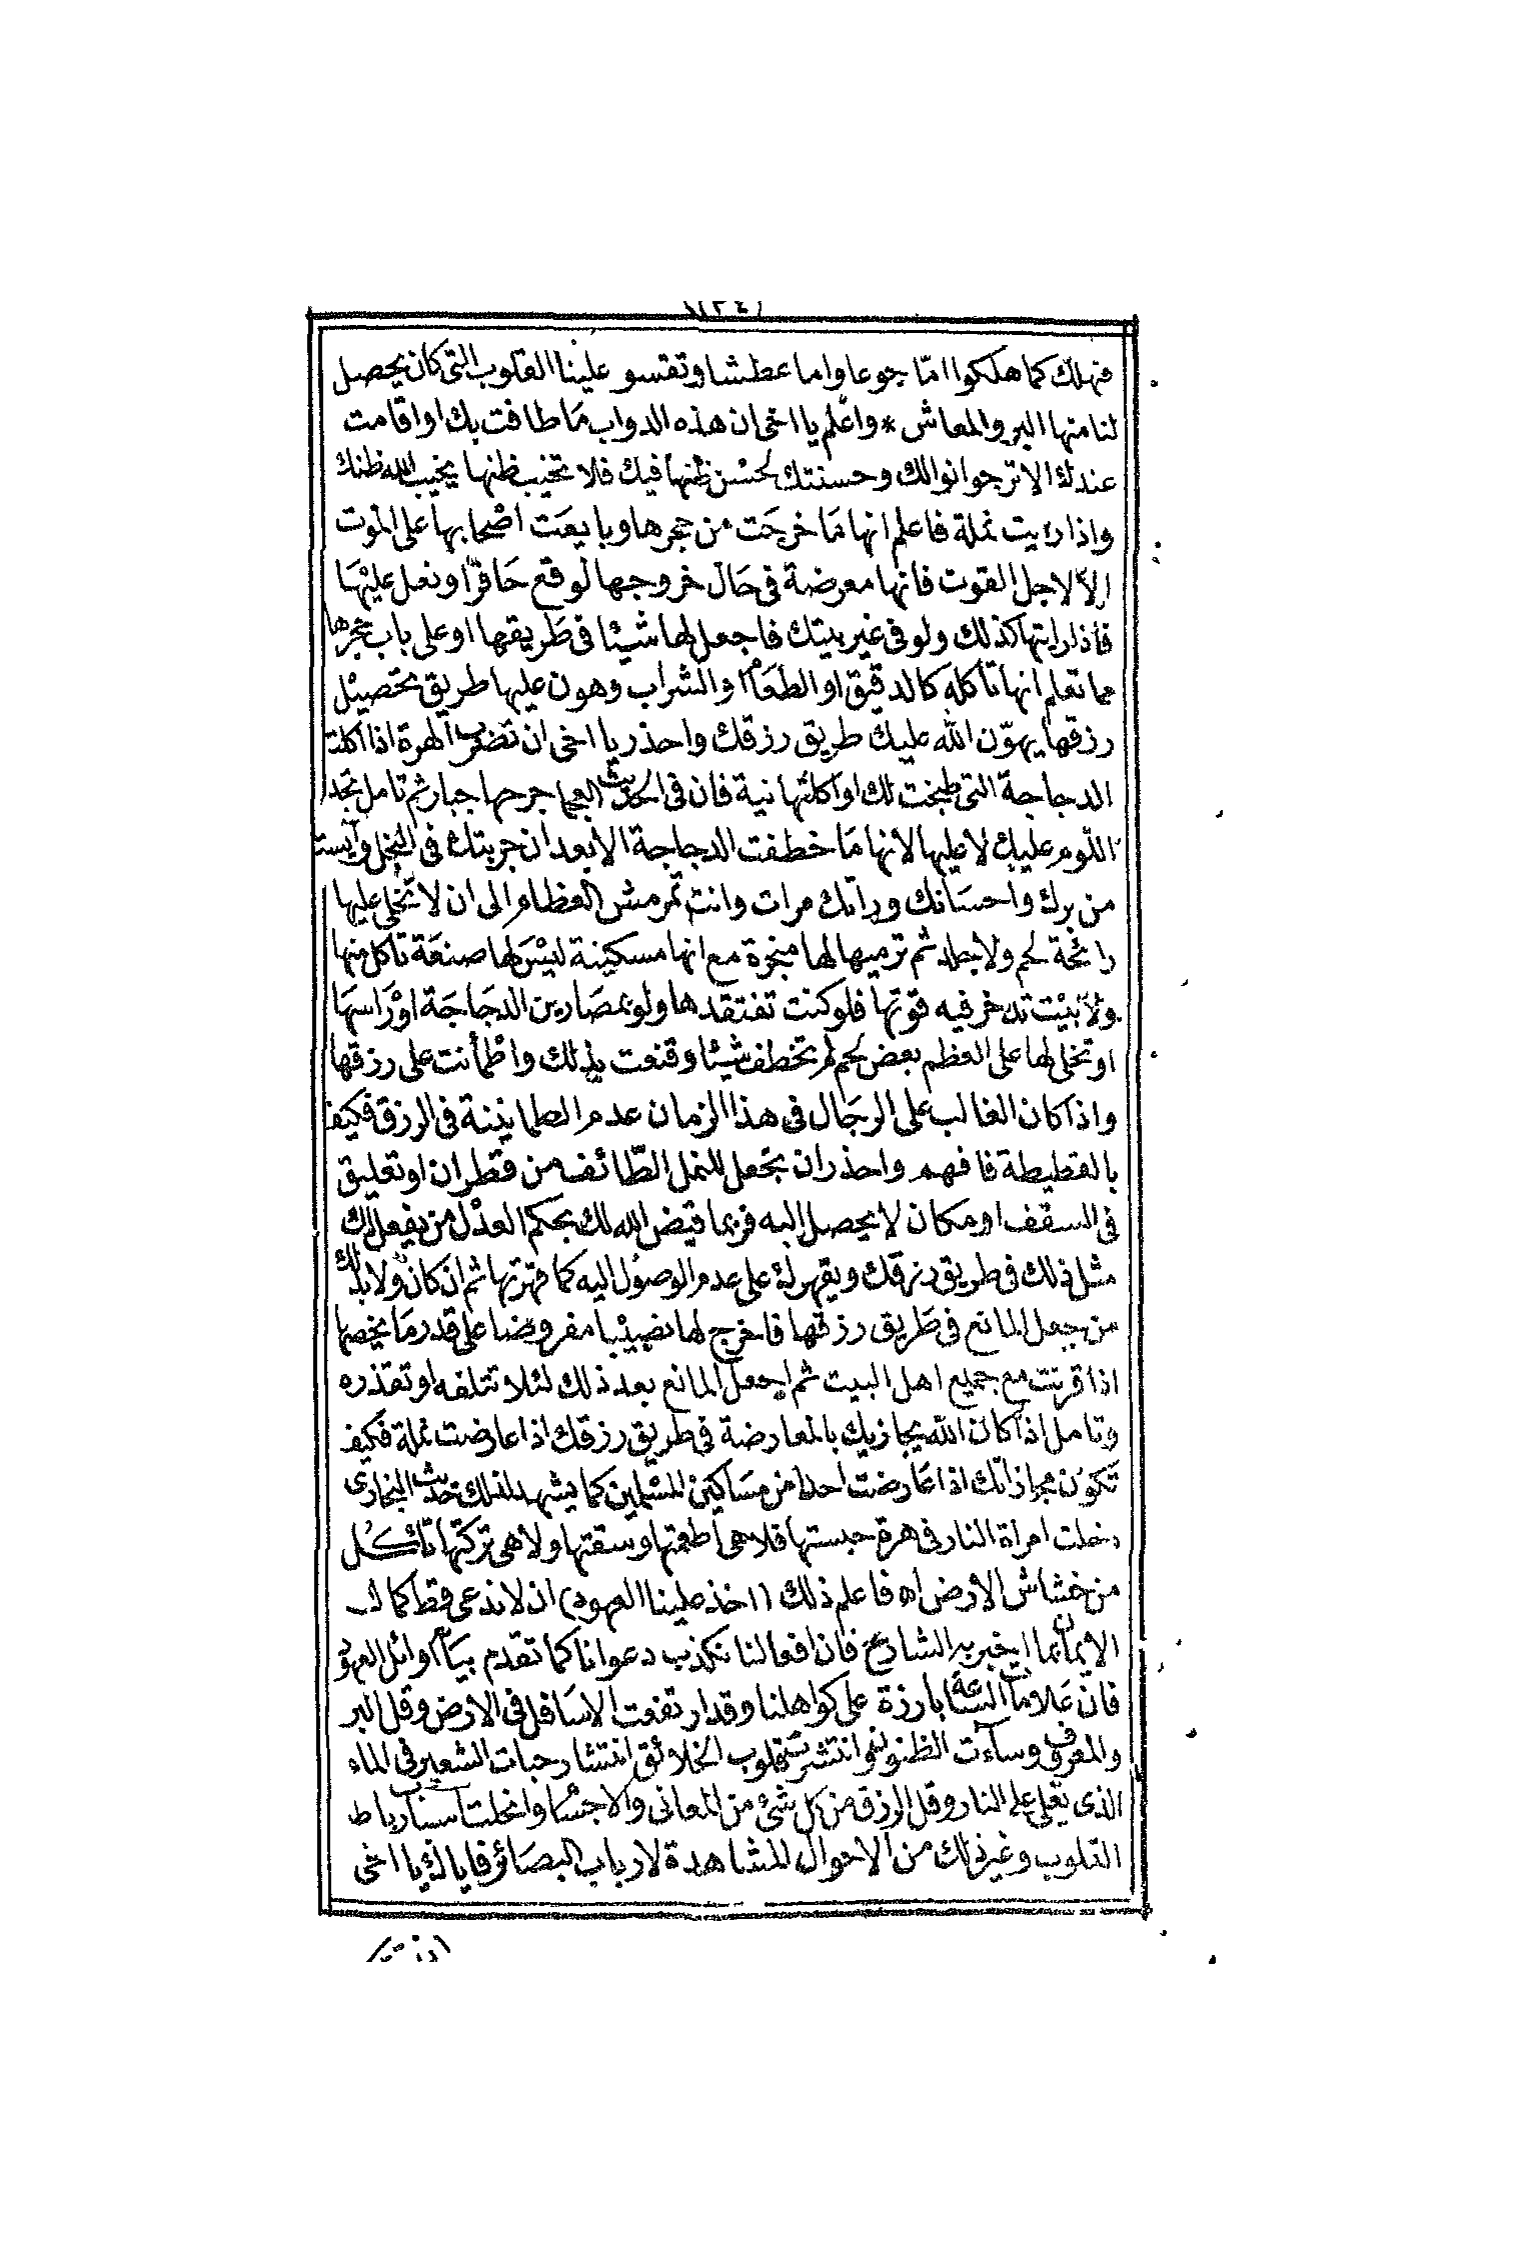 فنهلك كما هلكوا امّا جوعا واما عطشا وتقسو علينا القلوب التى كان يحصل
لنا منها البر والمعاش * واعلم يا اخى ان هذه الدواب ما طافت بك او اقامت
عندك الا ترجوا نوالك وحسنتك لحسن ظنها فيك فلا تخيب ظنها يخيب الله ظنك
واذا رايت نملة فاعلم انها ما خرجت من جحرها وبايعت اصحابها على الموت
الا لاجل القوت فانها معرضة فى حال خروجها لوقع حافر او نعل عليها
فاذا رايتها كذلك ولو فى غير بيتك فاجعل لها شيئا فى طريقها او على باب جحرها
مما تعلم انها تاكله كالدقيق او الطعام او الشراب وهون عليها طريق تحصيل
رزقها يهوّن الله عليك طريق رزقك واحذر يا اخى ان تضرب الهرة اذا اكلت
الدجاجة التى طبخت لك او اكلتها نية فان فى الحديث العجما جرحها جبار ثم تامل تجد
اللوم عليك لا عليها لانها ما خطفت الدجاجة الا بعد ان جربتك فى البخل وآيست
من برك واحسانك وراتك مرات وانت تمرمش العظام الى ان لا تخلى عليها
رائحة لحم ولا جلد ثم ترميها لها مبخرة مع انها مسكينة ليس لها صنعة تاكل منها
ولا بيت تدخر فيه قوتها فلو كنت تفتقدها ولو بمصارين الدجاجة او راسها
او تخلى لها على العظم بعض لحم لم تخطف شيئا وقنعت بذلك واطمأنت على رزقها
واذا كان الغالب على الرجال فى هذا الزمان عدم الطمانينة فى الرزق فكيف
بالقطيطة فافهم واحذر ان تجعل للنمل الطائف من قطران او تعليق
فى السقف او مكان لا يحصل اليه فربما قيض الله لك بحكم العدل من يفعل لك
مثل ذلك فى طريق رزقك ويقهرك على عدم الوصول اليه كما قهرتها ثم ان كان ولا بد لك
من جعل المانع فى طريق رزقها فاخرج لها نصيبا مفروضا على قدر ما يخصها
اذا قرنت مع جميع اهل البيت ثم اجعل المانع بعد ذلك لئلا تتلفه او تقذره
وتامل اذا كان الله يجازيك بالمعارضة فى طريق رزقك اذا عارضت نملة فكيف
تكون مجازاتك اذا عارضت احدا من مساكين المسلمين كما يشهد لذلك حديث البخارى
دخلت امراة النار فى هرة حبستها فلا هى اطعمتها وسقتها ولا هى تركتها تأكل
من خشاش الارض اه فاعلم ذلك (اخذ علينا العهود) ان لا ندعى قط كمال
الايمان بما اخبر به الشارع فان افعالنا تكذب دعوانا كما تقدم بيانه اوائل العهود
فان علامات الساعة بارزة على كواهلنا وقد ارتفعت الاسافل فى الارض وقل البر
والمعروف وساءت الظنون وانتشرت قلوب الخلائق انتشار حبات الشعير فى الماء
الذى يغلى على النار وقل الرزق من كل شئ من المعانى والاجسا وانحلت اسباب رباط
القلوب وغير ذلك من الاحوال المشاهدة لارباب البصائر فاياك يا اخى